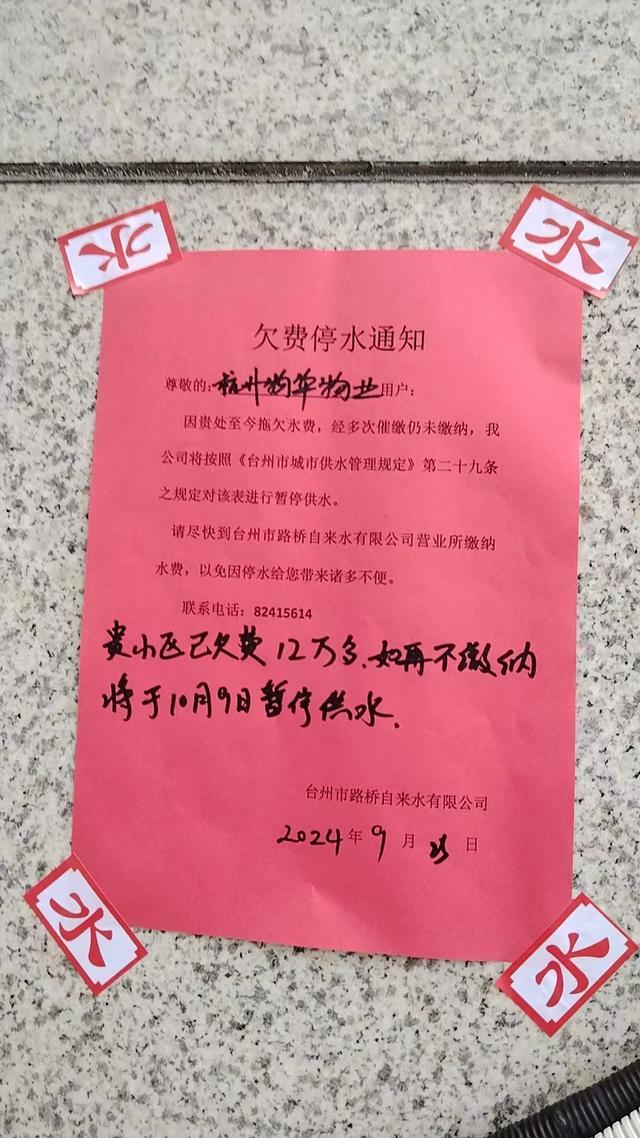 水 水
欠费停水通知
尊敬的:杭州物华物业用户:
因贵处至今拖欠水费，经多次催缴仍未缴纳，我
公司将按照《台州市城市供水管理规定》第二十九条
之规定对该表进行暂停供水。
请尽快到台州市路桥自来水有限公司营业所缴纳
水费，以免因停水给您带来诸多不便。
联系电话：82415614
贵小区已欠费12万多、如再不缴纳
将于10月9日暂停供水.
台州市路桥自来水有限公司
2024年9月 日
水 水